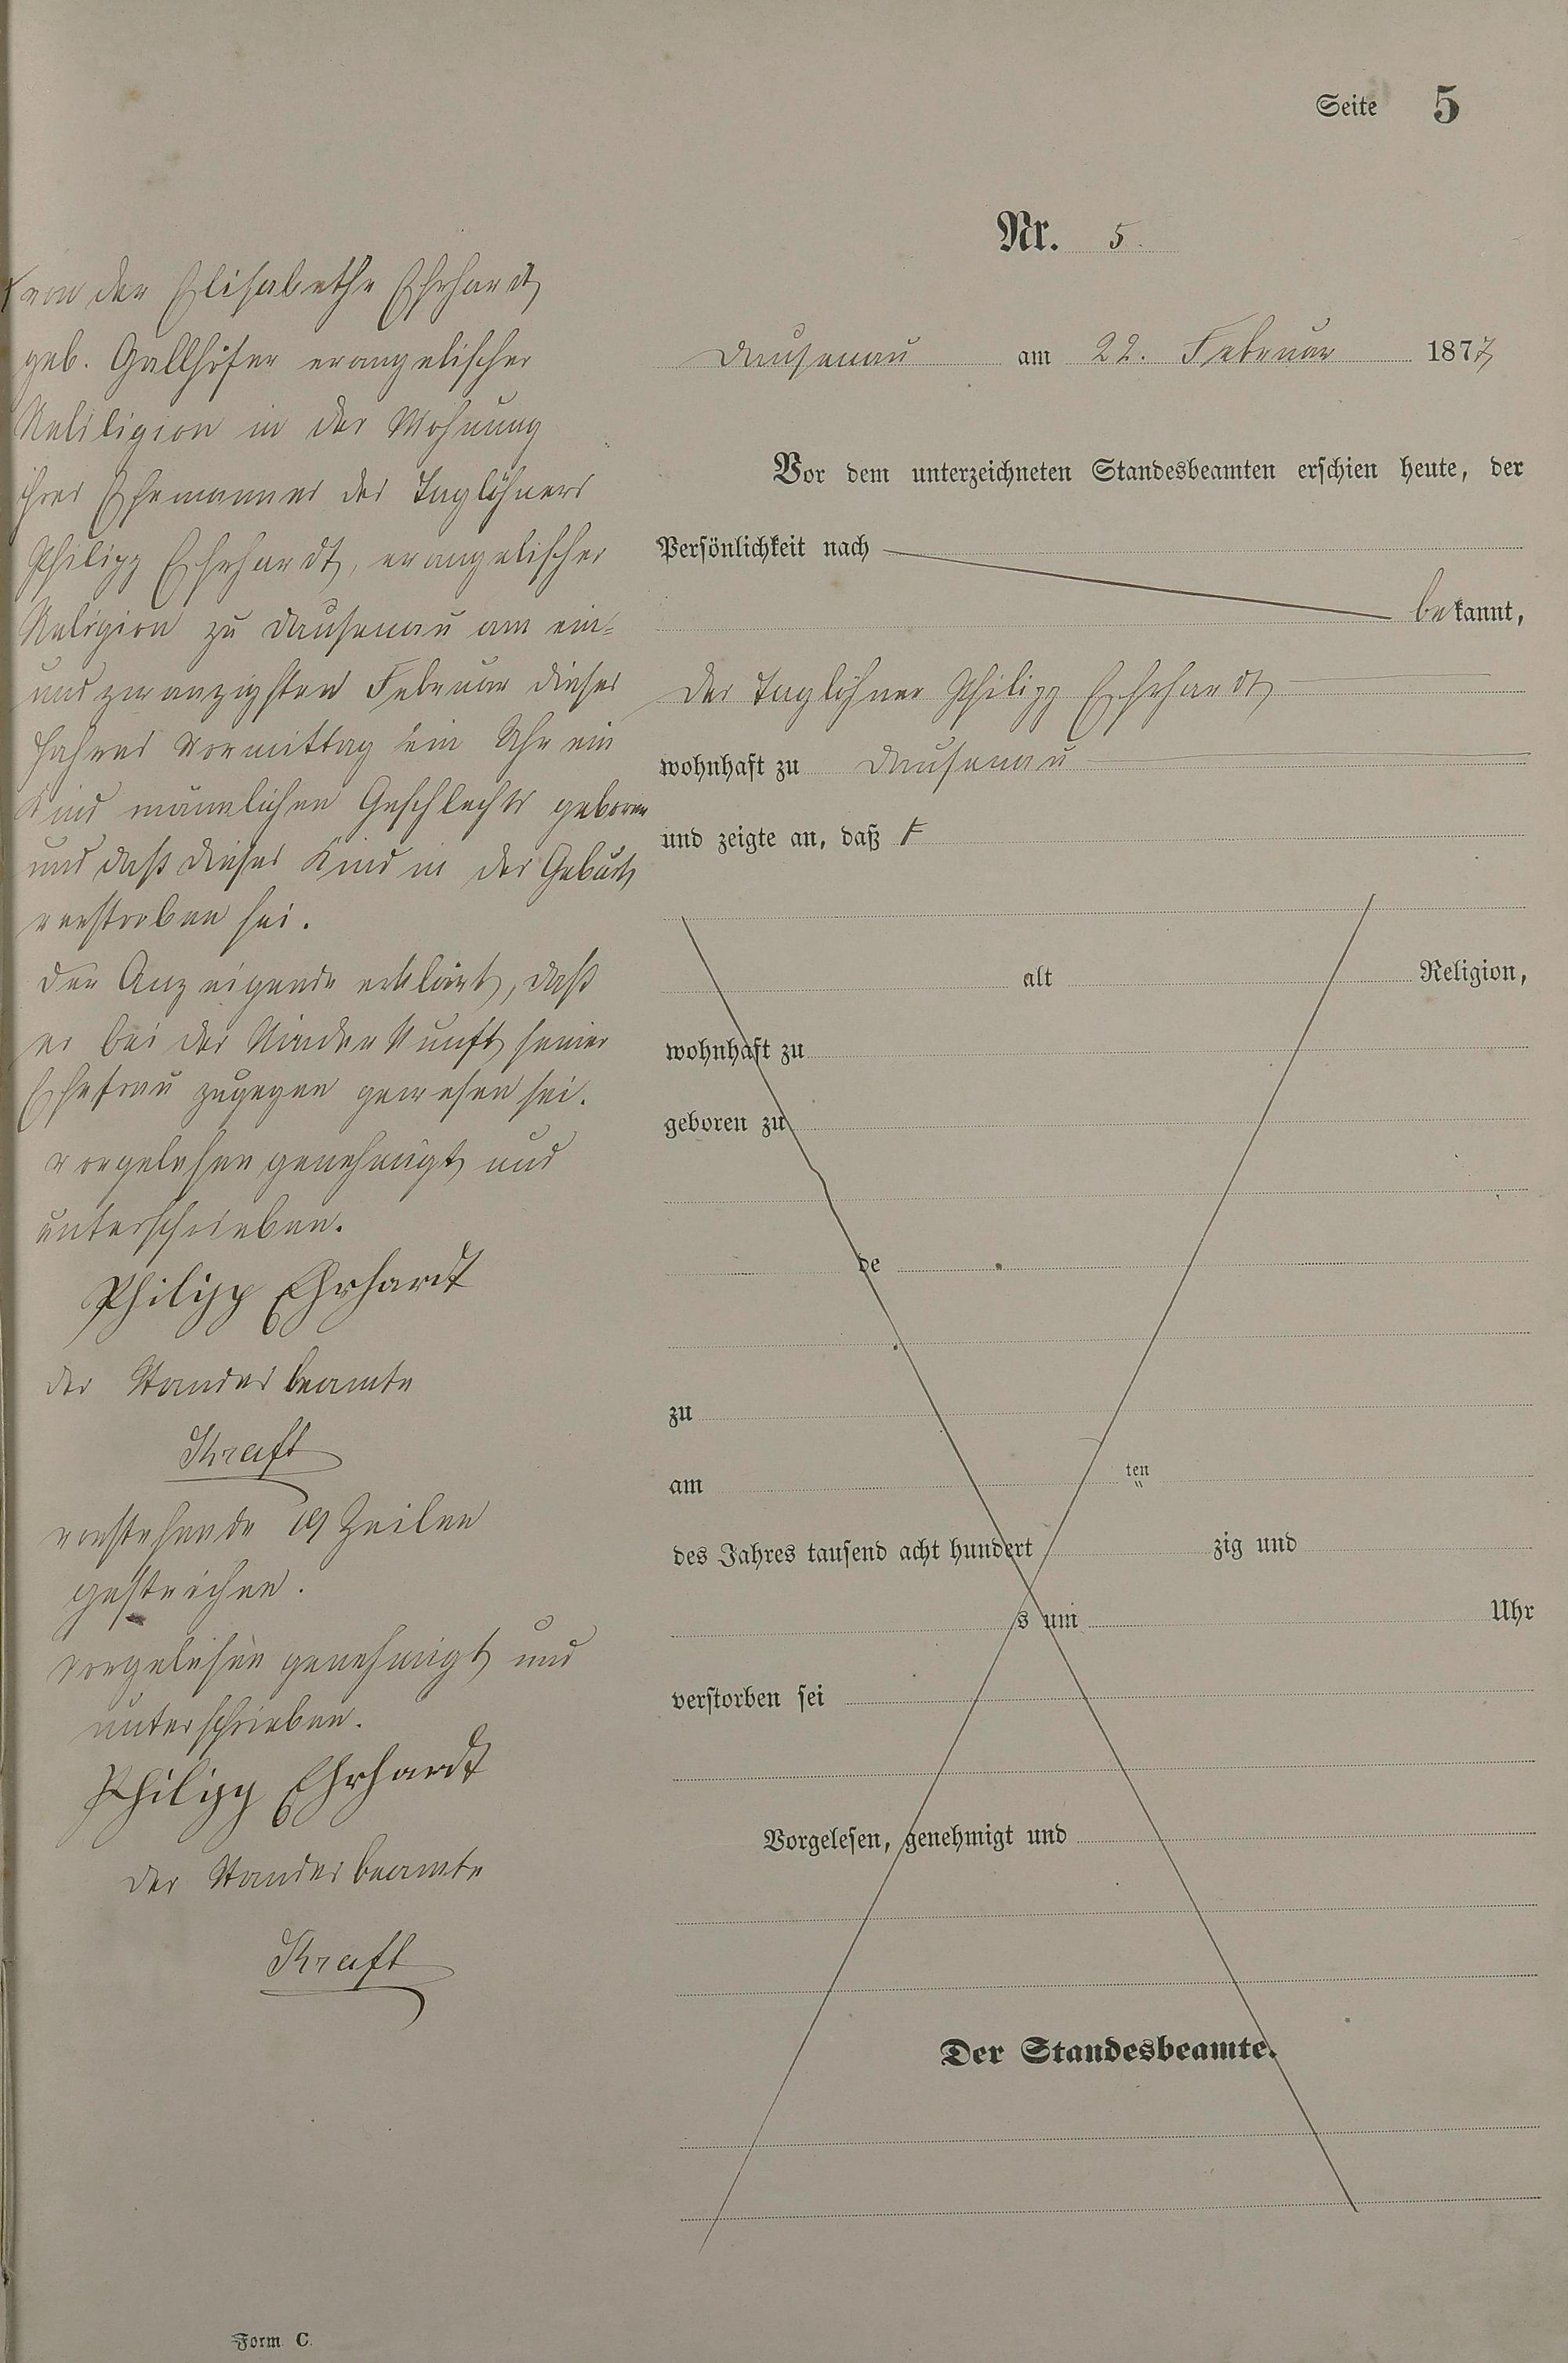 Seite 5
Nr. 5.
Dausenau am 22. Februar 1877
Vor dem unterzeichneten Standesbeamten erschien heute, der
Persönlichkeit nach
bekannt,
der Taglöhner Philipp Ehrhardt
wohnhaft zu Dausenau
und zeigte an, daß
alt Religion,
wohnhaft zu
geboren zu
de
zu
am ten
des Jahres tausend acht hundert zig und
s um Uhr
verstorben sei
Vorgelesen, genehmigt und
Der Standesbeamte.
von der Elisabethe Ehrhardt
geb. Gallhöfer evangelischer
Reliligion in der Wohnung
ihres Ehemannes des Taglöhners
Philipp Ehrhardt, evangelischer
Religion zu Dausenau am ein-
und zwanzigsten Februar dieses
Jahres Vormittag ein Uhr ein
Kind männlichen Geschlechts geboren
und daß dieses Kind in der Geburt
verstorben sei.
Der Anzeigende erklärt, daß
er bei der Niederkunft seiner
Ehefrau zugegen gewesen sei.
vorgelesen genehmigt und
unterschrieben.
Philipp Ehrhardt
der Standesbeamte
Kraft
vorstehende 19 Zeilen
gestrichen.
vorgelesen genehmigt und
unterschrieben.
Philipp Ehrhardt
der Standesbeamte
Kraft
Form C.